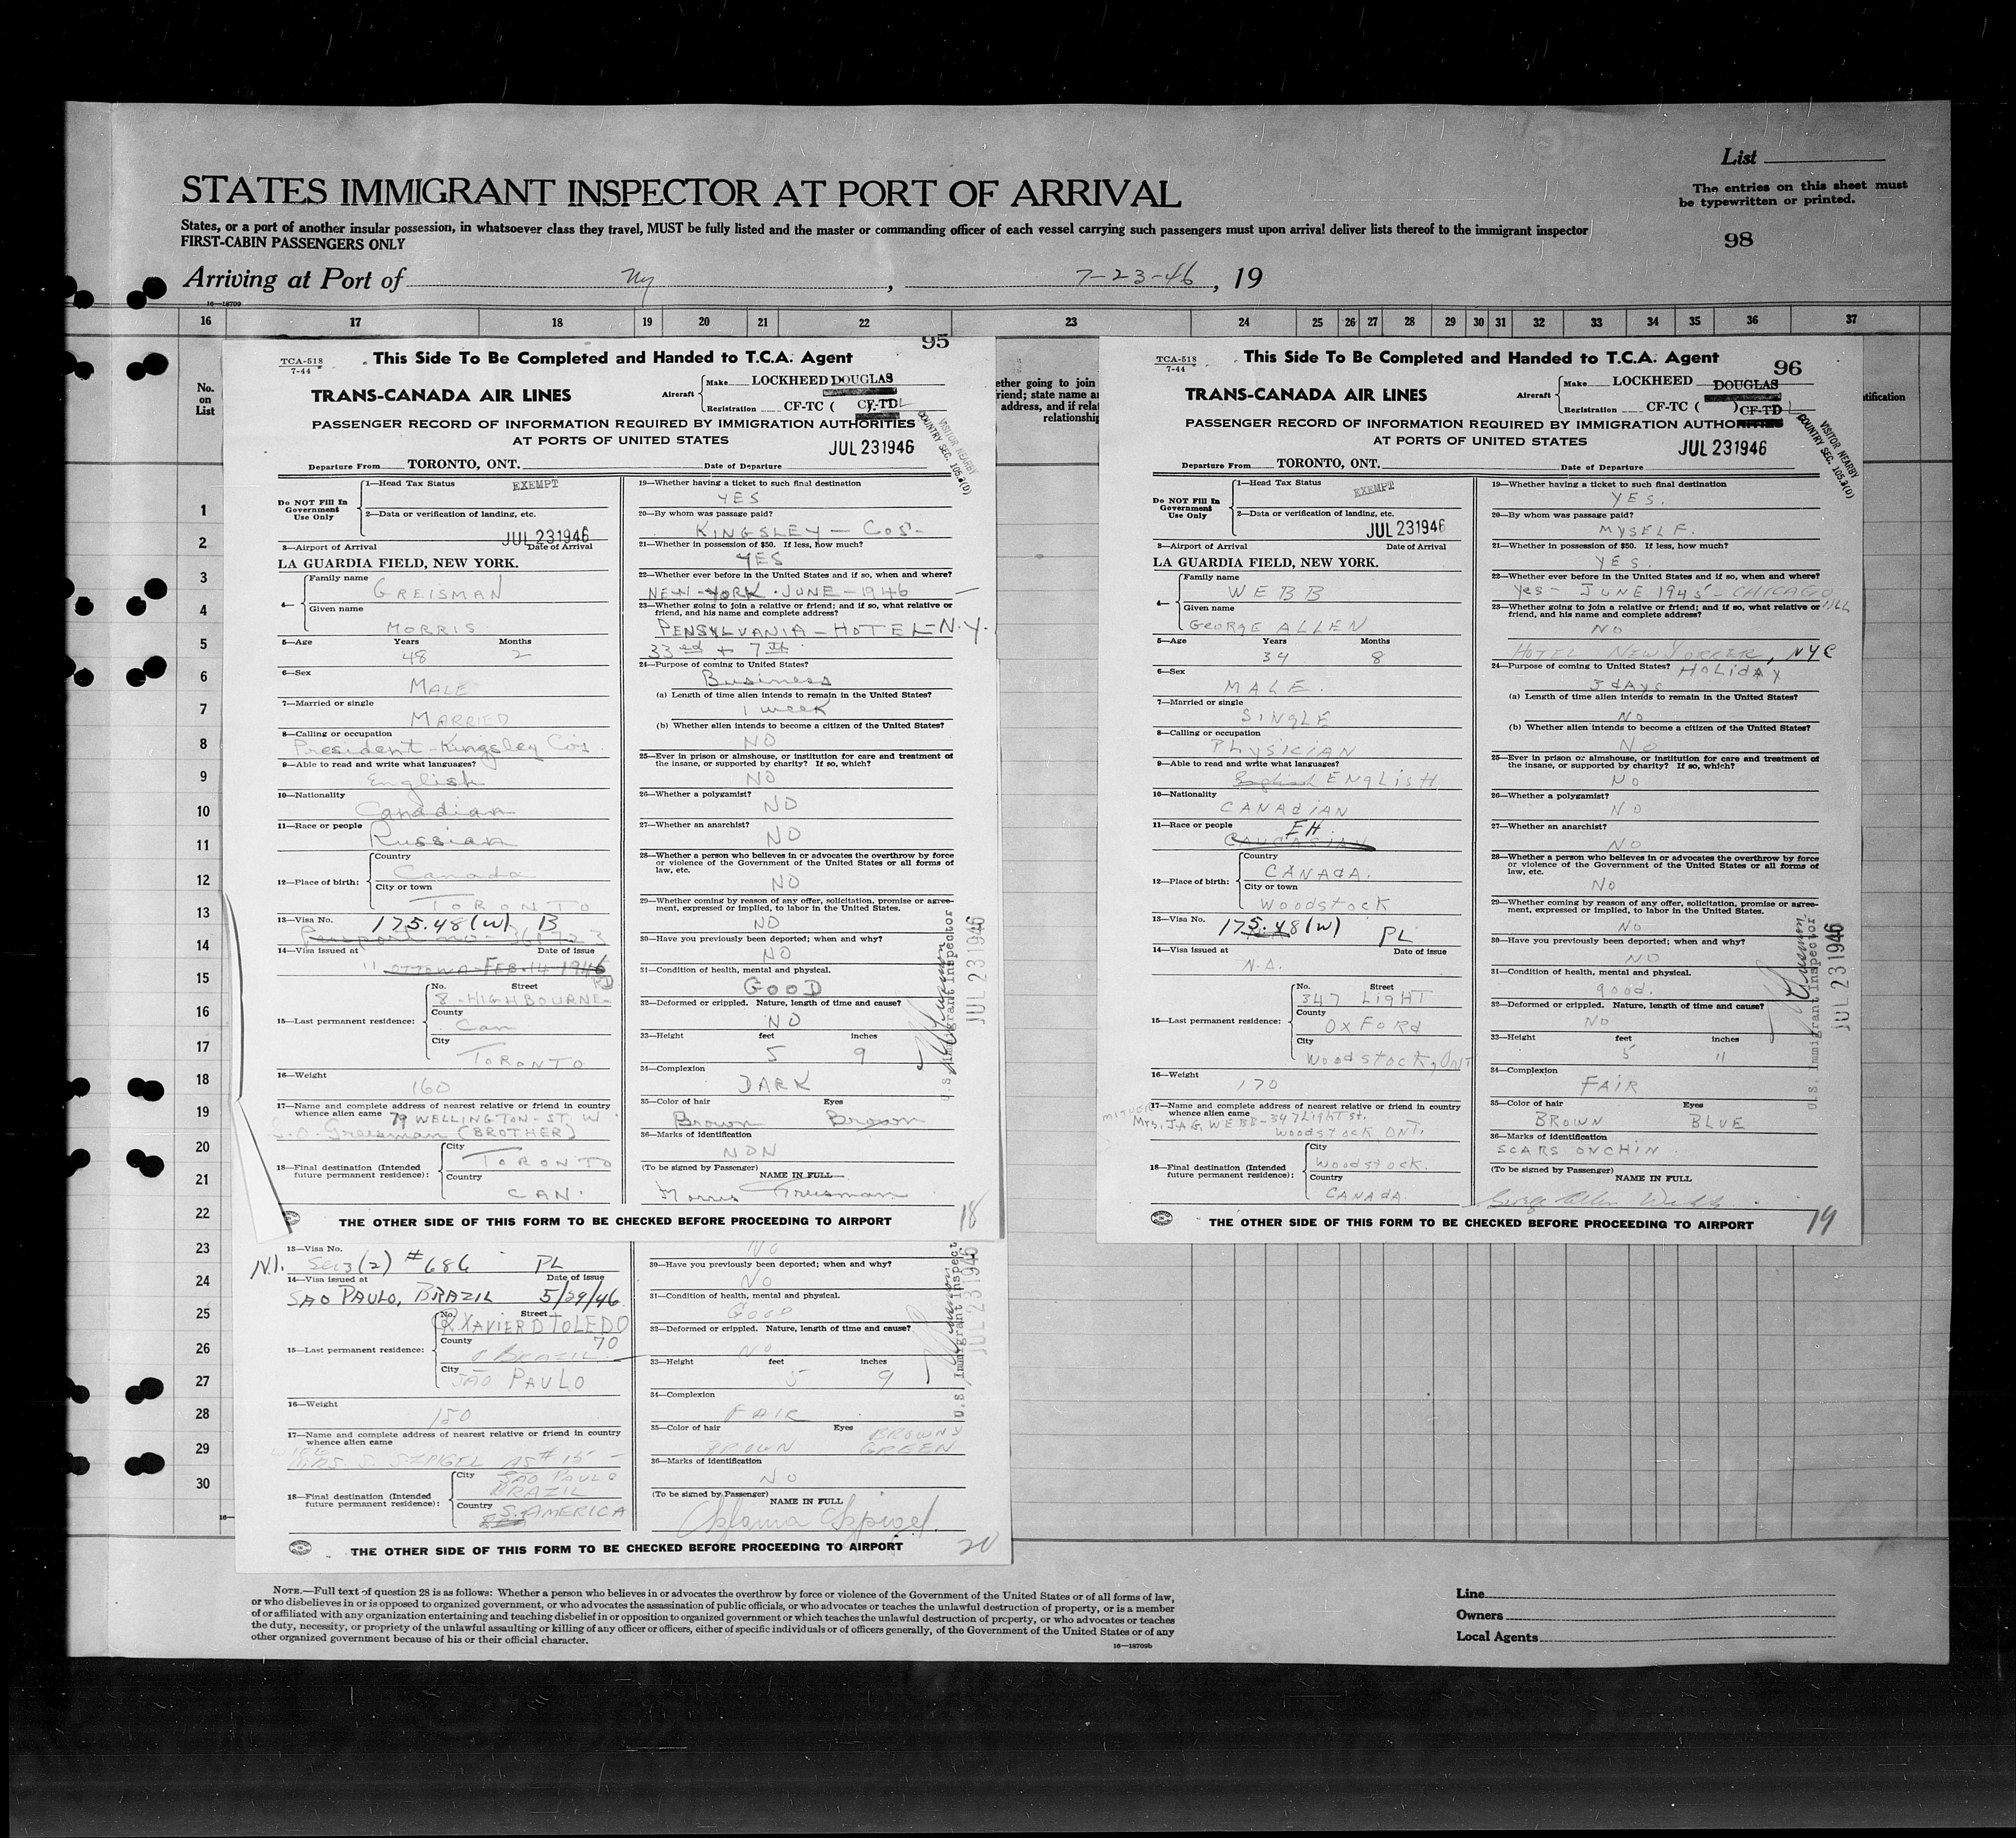 List
STATES IMMIGRANT INSPECTOR AT PORT OF ARRIVAL
The entries on this sheet must
be typewritten or printed.
States, or a port of another insular possession, in whatsoever class they travel, MUST be fully listed and the master or commanding officer of each vessel carrying such passengers must upon arrival deliver lists thereof to the immigrant inspector
FIRST-CABIN PASSENGERS ONLY
98
Arriving at Port of Ny , 7-23-46 , 19
16—18709
16 17 18 19 20 21 22 23 24 25 26 27 28 29 30 31 32 33 34 35 36 37
No.
on
List
1
2
3
4
5
6
7
8
9
10
11
12
13
14
15
16
17
18
19
20
21
22
23
24
25
26
27
28
29
30
95
TCA-518
7-44
This Side To Be Completed and Handed to T.C.A. Agent
TRANS-CANADA AIR LINES
Aircraft
Make LOCKHEED DOUGLAS
Registration CF-TC ( CF-TD L
PASSENGER RECORD OF INFORMATION REQUIRED BY IMMIGRATION AUTHORITIES
AT PORTS OF UNITED STATES
JUL 23 1946
VISITOR NEARBY
COUNTRY SEC. 105.3(D)
Departure From TORONTO, ONT. Date of Departure
Do NOT Fill In
Government
Use Only
1—Head Tax Status EXEMPT
2—Data or verification of landing, etc.
JUL 23 1946
3—Airport of Arrival Date of Arrival
LA GUARDIA FIELD, NEW YORK.
4—
Family name
GREISMAN
Given name
MORRIS
5—Age Years Months
48 2
6—Sex
MALE
7—Married or single
MARRIED
8—Calling or occupation
President-Kingsley Co's.
9—Able to read and write what languages?
English
10—Nationality
Canadian
11—Race or people
Russian
12—Place of birth:
Country
Canada
City or town
TORONTO
13—Visa No. 175.48(W) B
14—Visa issued at Date of issue
" OTTOWA-FEB-14 1946
15—Last permanent residence:
No. Street
8-HIGHBOURNE-
County
Can
City
TORONTO
16—Weight
160
17—Name and complete address of nearest relative or friend in country
whence alien came 79 WELLINGTON-ST. W
Greisman (BROTHER)
18—Final destination (Intended
future permanent residence):
City
TORONTO
Country
CAN.
19—Whether having a ticket to such final destination
YES
20—By whom was passage paid?
KINGSLEY - COS'-
21—Whether in possession of $50. If less, how much?
YES
22—Whether ever before in the United States and if so, when and where?
NEW-YORK-JUNE-1946
23—Whether going to join a relative or friend; and if so, what relative or
friend, and his name and complete address?
PENSYLVANIA-HOTEL-N.Y.
33rd + 7th
24—Purpose of coming to United States?
Business
(a) Length of time alien intends to remain in the United States?
1 week
(b) Whether alien intends to become a citizen of the United States?
NO
25—Ever in prison or almshouse, or institution for care and treatment of
the insane, or supported by charity? If so, which?
NO
26—Whether a polygamist?
NO
27—Whether an anarchist?
NO
28—Whether a person who believes in or advocates the overthrow by force
or violence of the Government of the United States or all forms of
law, etc.
NO
29—Whether coming by reason of any offer, solicitation, promise or agree-
ment, expressed or implied, to labor in the United States.
NO
30—Have you previously been deported; when and why?
NO
31—Condition of health, mental and physical.
GOOD
32—Deformed or crippled. Nature, length of time and cause?
NO
33—Height feet inches
5 9
34—Complexion
DARK
35—Color of hair Eyes
Brown Brown
36—Marks of identification
NON
(To be signed by Passenger) NAME IN FULL
Morris Greisman
U.S. Immigrant Inspector
JUL 23 1946
THE OTHER SIDE OF THIS FORM TO BE CHECKED BEFORE PROCEEDING TO AIRPORT
18
ether going to join
riend; state name a
address, and if rela
relationship
96
TCA-518
7-44
This Side To Be Completed and Handed to T.C.A. Agent
TRANS-CANADA AIR LINES
Aircraft
Make LOCKHEED DOUGLAS
Registration CF-TC ( ) CF-TD L
PASSENGER RECORD OF INFORMATION REQUIRED BY IMMIGRATION AUTHORITIES
AT PORTS OF UNITED STATES
JUL 23 1946
VISITOR NEARBY
COUNTRY SEC. 105.3(D)
Departure From TORONTO, ONT. Date of Departure
Do NOT Fill In
Government
Use Only
1—Head Tax Status EXEMPT
2—Data or verification of landing, etc.
JUL 23 1946
3—Airport of Arrival Date of Arrival
LA GUARDIA FIELD, NEW YORK.
4—
Family name
WEBB
Given name
GEORGE ALLEN
5—Age Years Months
34 8
6—Sex
MALE.
7—Married or single
SINGLE
8—Calling or occupation
PHYSICIAN
9—Able to read and write what languages?
English ENGLISH
10—Nationality
CANADIAN
11—Race or people EH
CAUCASIAN
12—Place of birth:
Country
CANADA.
City or town
Woodstock
13—Visa No. 175.48(W) PL
14—Visa issued at Date of issue
N.A.
15—Last permanent residence:
No. Street
347 LIGHT
County
OXFORD
City
Woodstock, ONT
16—Weight
170
17—Name and complete address of nearest relative or friend in country
whence alien came
Mrs. J.A.G. WEBB-347 Light St.
Woodstock ONT.
18—Final destination (Intended
future permanent residence):
City
Woodstock.
Country
CANADA.
19—Whether having a ticket to such final destination
YES.
20—By whom was passage paid?
MYSELF.
21—Whether in possession of $50. If less, how much?
YES.
22—Whether ever before in the United States and if so, when and where?
Yes - JUNE 1945 - CHICAGO ILL
23—Whether going to join a relative or friend; and if so, what relative or
friend, and his name and complete address?
NO
HOTEL NEW YORKER, NYC
24—Purpose of coming to United States? HOLIDAY
3 days
(a) Length of time alien intends to remain in the United States?
NO
(b) Whether alien intends to become a citizen of the United States?
NO
25—Ever in prison or almshouse, or institution for care and treatment of
the insane, or supported by charity? If so, which?
NO
26—Whether a polygamist?
NO
27—Whether an anarchist?
NO
28—Whether a person who believes in or advocates the overthrow by force
or violence of the Government of the United States or all forms of
law, etc.
NO
29—Whether coming by reason of any offer, solicitation, promise or agree-
ment, expressed or implied, to labor in the United States.
NO
30—Have you previously been deported; when and why?
NO
31—Condition of health, mental and physical.
good.
32—Deformed or crippled. Nature, length of time and cause?
NO
33—Height feet inches
5 11
34—Complexion
FAIR
35—Color of hair Eyes
BROWN BLUE
36—Marks of identification
SCARS ON CHIN
(To be signed by Passenger) NAME IN FULL
George Allen Webb
U.S. Immigrant Inspector
JUL 23 1946
THE OTHER SIDE OF THIS FORM TO BE CHECKED BEFORE PROCEEDING TO AIRPORT
19
ntification
13—Visa No.
N.I. Sec 3(2) #686 PL
14—Visa issued at Date of issue
SAO PAULO, BRAZIL 5/29/46
15—Last permanent residence:
No. Street
R XAVIER D TOLEDO
70
County
BRAZIL
City
SAO PAULO
16—Weight
150
17—Name and complete address of nearest relative or friend in country
whence alien came
WIFE
MRS S. SZPIGEL AS # 15 -
18—Final destination (Intended
future permanent residence):
City SAO PAULO
BRAZIL
Country S. AMERICA
NO
30—Have you previously been deported; when and why?
NO
31—Condition of health, mental and physical.
GOOD
32—Deformed or crippled. Nature, length of time and cause?
NO
33—Height feet inches
5 9
34—Complexion
FAIR
35—Color of hair Eyes
BROWN BROWNY GREEN
36—Marks of identification
NO
(To be signed by Passenger)
NAME IN FULL
U.S. Immigrant Inspect
JUL 23 1946
THE OTHER SIDE OF THIS FORM TO BE CHECKED BEFORE PROCEEDING TO AIRPORT
20
16—
NOTE.—Full text of question 28 is as follows: Whether a person who believes in or advocates the overthrow by force or violence of the Government of the United States or of all forms of law,
or who disbelieves in or is opposed to organized government, or who advocates the assassination of public officials, or who advocates or teaches the unlawful destruction of property, or is a member
of or affiliated with any organization entertaining and teaching disbelief in or opposition to organized government or which teaches the unlawful destruction of property, or who advocates or teaches
the duty, necessity, or propriety of the unlawful assaulting or killing of any officer or officers, either of specific individuals or of officers generally, of the Government of the United States or of any
other organized government because of his or their official character.
16—18709b
Line
Owners
Local Agents